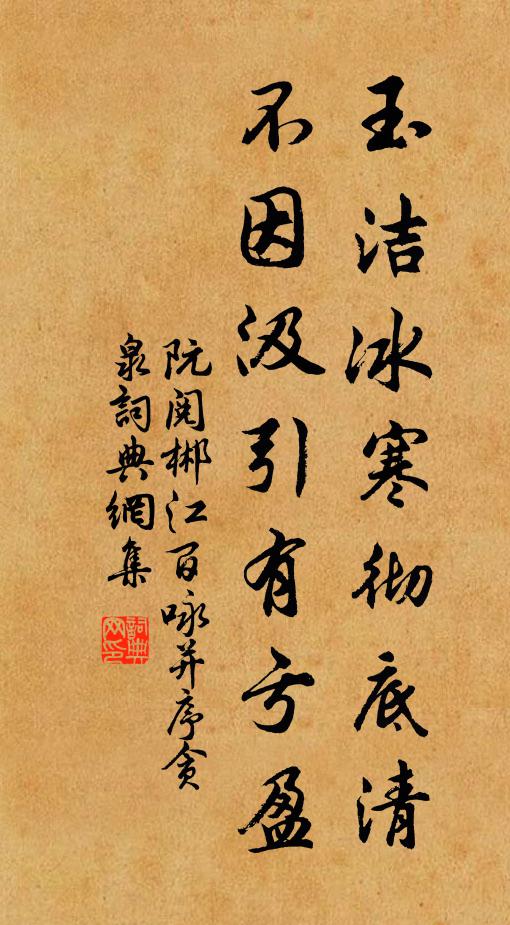 玉洁冰寒彻底清
不因汲引有亏盈
阮阅郴江百咏并序贪
泉詞典網集
詞典網印